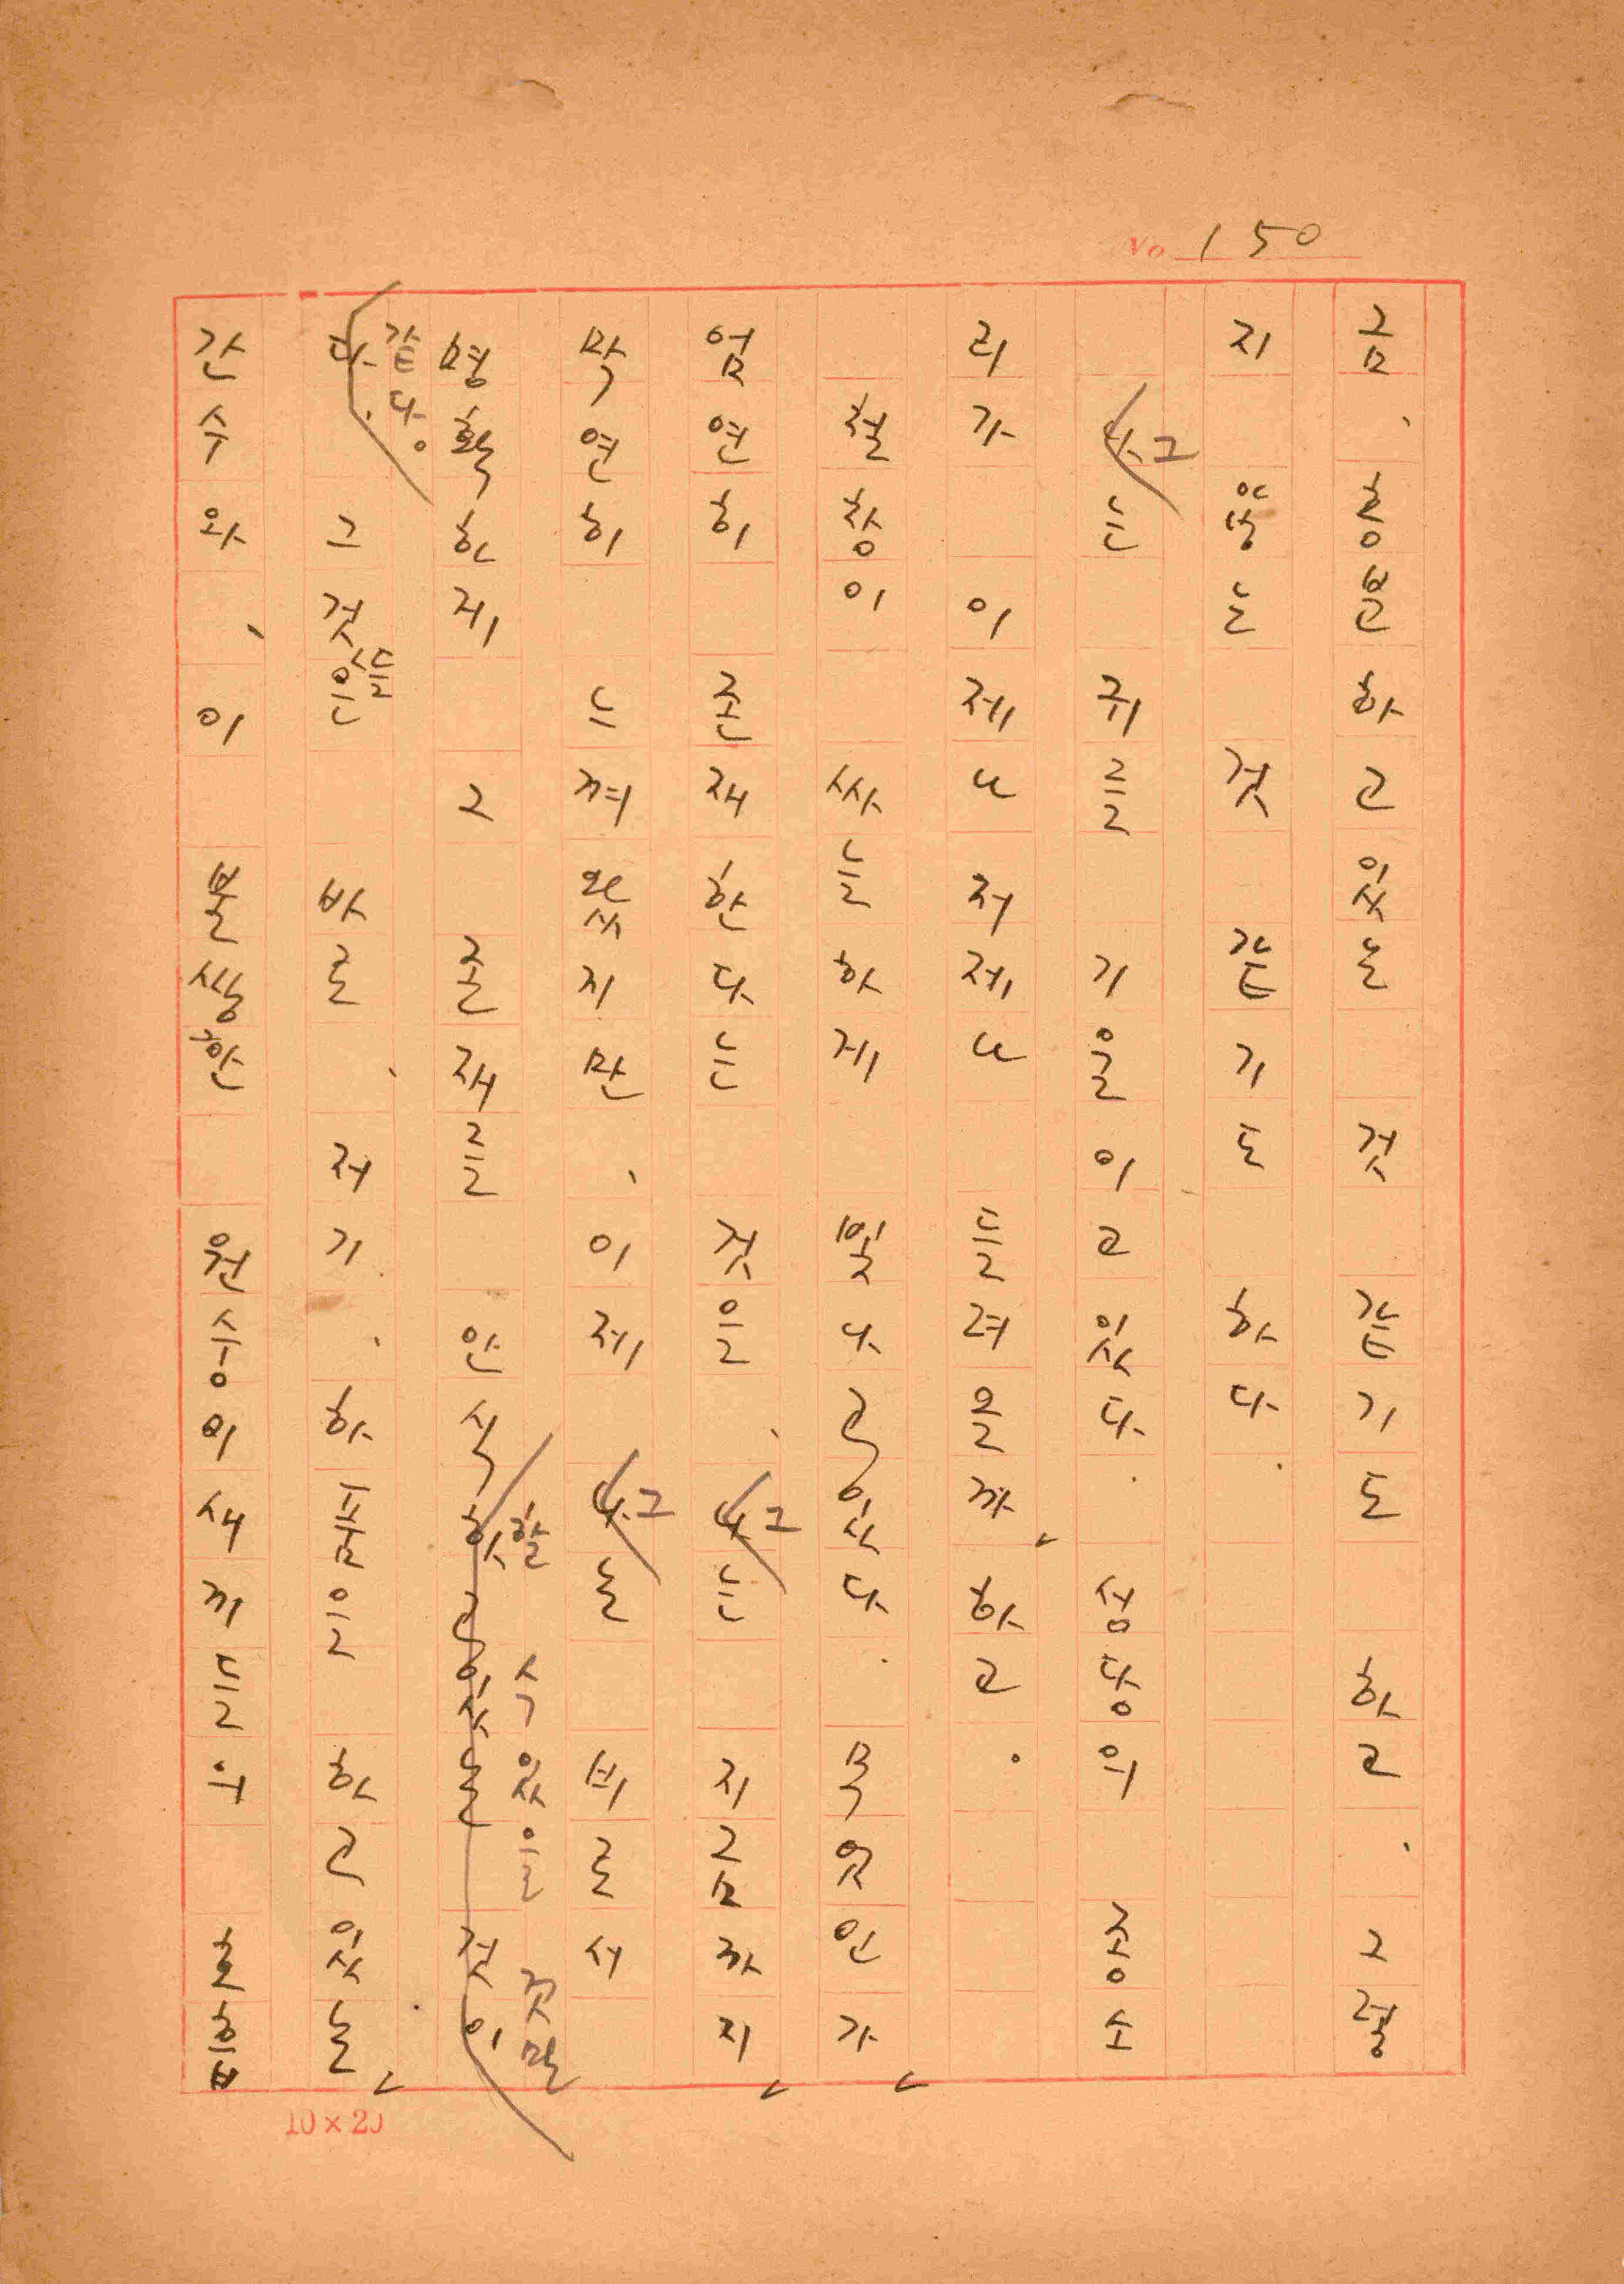 No 150
금、흥분하고있는 것 같기도 하고、그렇
지 않는 것 같기도 하다.
나그는 귀를 기울이고있다. 성당의 종소
리가 이제나저제나 들려올까, 하고.
철창이 싸늘하게 빛나고있다. 무엇인가,
엄연히 존재한다는 것을、나그는 지금까지,
막연히 느껴왔지만、이제 나그는 비로서
명확하게 그 존재를 인식하고있는 것이
할 수 있을 것만
다. 그것은 바로、저기、하품을 하고있는,
같다.
들
간수와、이 불상한 원숭이새끼들
10×20